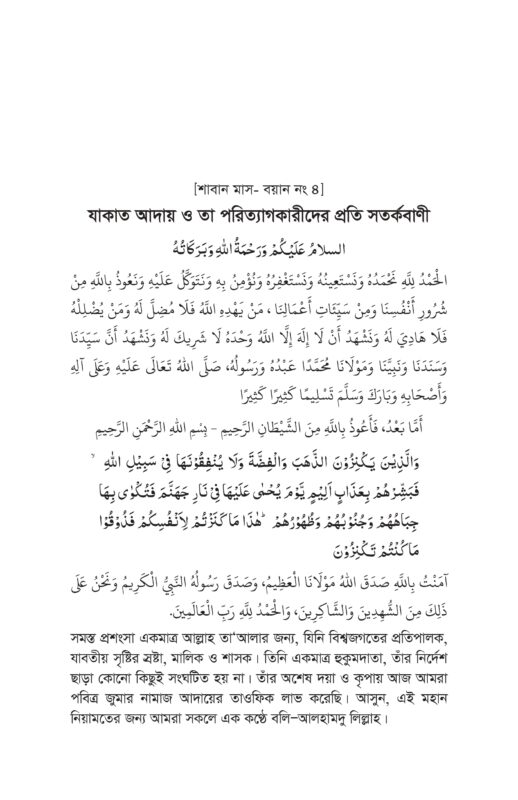 [শাবান মাস- বয়ান নং ৪]
যাকাত আদায় ও তা পরিত্যাগকারীদের প্রতি সতর্কবাণী
السلامُ عَلَيْكُمْ وَرَحْمَةُ اللهِ وَبَرَكَاتُهُ
الْحَمْدُ لِلَّهِ نَحْمَدُهُ وَنَسْتَعِينُهُ وَنَسْتَغْفِرُهُ وَنُؤْمِنُ بِهِ وَنَتَوَكَّلُ عَلَيْهِ وَنَعُوذُ بِاللَّهِ مِنْ
شُرُورِ أَنْفُسِنَا وَمِنْ سَيِّئَاتِ أَعْمَالِنَا ، مَنْ يَهْدِهِ اللَّهُ فَلَا مُضِلَّ لَهُ وَمَنْ يُضْلِلْهُ
فَلَا هَادِيَ لَهُ وَنَشْهَدُ أَنْ لَا إِلَهَ إِلَّا اللَّهُ وَحْدَهُ لَا شَرِيكَ لَهُ وَنَشْهَدُ أَنَّ سَيِّدَنَا
وَسَنَدَنَا وَنَبِيَّنَا وَمَوْلَانَا مُحَمَّدًا عَبْدُهُ وَرَسُولُهُ، صَلَّى اللهُ تَعَالَى عَلَيْهِ وَعَلَى آلِهِ
وَأَصْحَابِهِ وَبَارَكَ وَسَلَّمَ تَسْلِيمًا كَثِيرًا كَثِيرًا
أَمَّا بَعْدُ، فَأَعُوذُ بِاللَّهِ مِنَ الشَّيْطَانِ الرَّجِيمِ - بِسْمِ اللهِ الرَّحْمَنِ الرَّحِيمِ
وَالَّذِيْنَ يَكْنِزُوْنَ الذَّهَبَ وَالْفِضَّةَ وَلَا يُنْفِقُوْنَهَا فِيْ سَبِيْلِ اللهِ ۙ
فَبَشِّرْهُمْ بِعَذَابٍ اَلِيْمٍ يَّوْمَ يُحْمٰى عَلَيْهَا فِيْ نَارِ جَهَنَّمَ فَتُكْوٰى بِهَا
جِبَاهُهُمْ وَجُنُوْبُهُمْ وَظُهُوْرُهُمْ ؕ هٰذَا مَا كَنَزْتُمْ لِاَنْفُسِكُمْ فَذُوْقُوْا
مَا كُنْتُمْ تَكْنِزُوْنَ
آمَنْتُ بِاللَّهِ صَدَقَ اللهُ مَوْلَانَا الْعَظِيمُ، وَصَدَقَ رَسُولُهُ النَّبِيُّ الْكَرِيمُ وَنَحْنُ عَلَى
ذَلِكَ مِنَ الشُّهِدِينَ وَالشَّاكِرِينَ، وَالْحَمْدُ لِلَّهِ رَبِّ الْعَالَمِينَ.
সমস্ত প্রশংসা একমাত্র আল্লাহ তা‘আলার জন্য, যিনি বিশ্বজগতের প্রতিপালক,
যাবতীয় সৃষ্টির স্রষ্টা, মালিক ও শাসক। তিনি একমাত্র হুকুমদাতা, তাঁর নির্দেশ
ছাড়া কোনো কিছুই সংঘটিত হয় না। তাঁর অশেষ দয়া ও কৃপায় আজ আমরা
পবিত্র জুমার নামাজ আদায়ের তাওফিক লাভ করেছি। আসুন, এই মহান
নিয়ামতের জন্য আমরা সকলে এক কণ্ঠে বলি–আলহামদু লিল্লাহ।